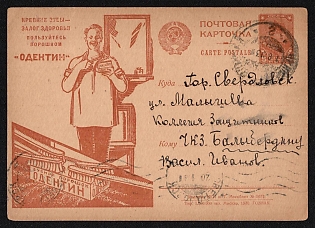 КРЕПКИЕ ЗУБЫ—
ЗАЛОГ ЗДОРОВЬЯ
ПОЛЬЗУЙТЕСЬ
ПОРОШКОМ
"ОДЕНТИН"
ПОЧТОВАЯ
КАРТОЧКА
CARTE POSTALE
Куда Гор. Свердловск.
ул. Малышева
Коллегия Защитников
Кому ЧКЗ. Балыбердину
Васил. Иванов.
ОДЕНТИН